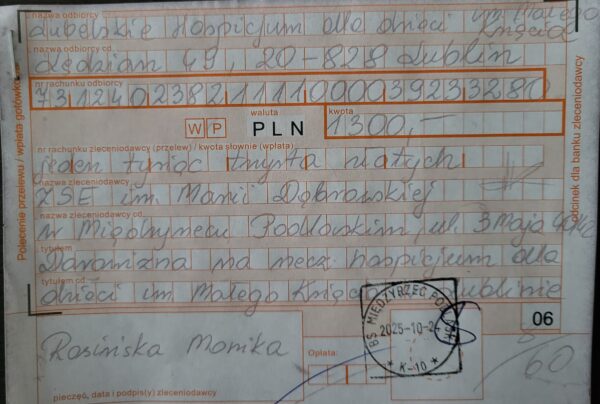 Lubelskie Hospicjum dla dzieci im. Małego
Księcia
nazwa odbiorcy cd.
Lędzian 49, 20-828 Lublin
nr rachunku odbiorcy
73124023821111000039233280
waluta
kwota
W P PLN 1300,-
nr rachunku zleceniodawcy (przelew) / kwota słownie (wpłata)
jeden tysiąc trzysta złotych
nazwa zleceniodawcy
ZSE im. Marii Dąbrowskiej
nazwa zleceniodawcy cd.
w Międzyrzecu Podlaskim, ul. 3 Maja
tytułem
Darowizna na rzecz hospicjum dla
tytułem cd.
dzieci im. Małego Księcia w Lublinie
06
BS MIĘDZYRZEC PODLASKI
2025-10-24
* K-10 *
Rosińska Monika
Opłata:
60
pieczęć, data i podpis(y) zleceniodawcy
Polecenie przelewu / wpłata gotówkowa
odcinek dla banku zleceniodawcy